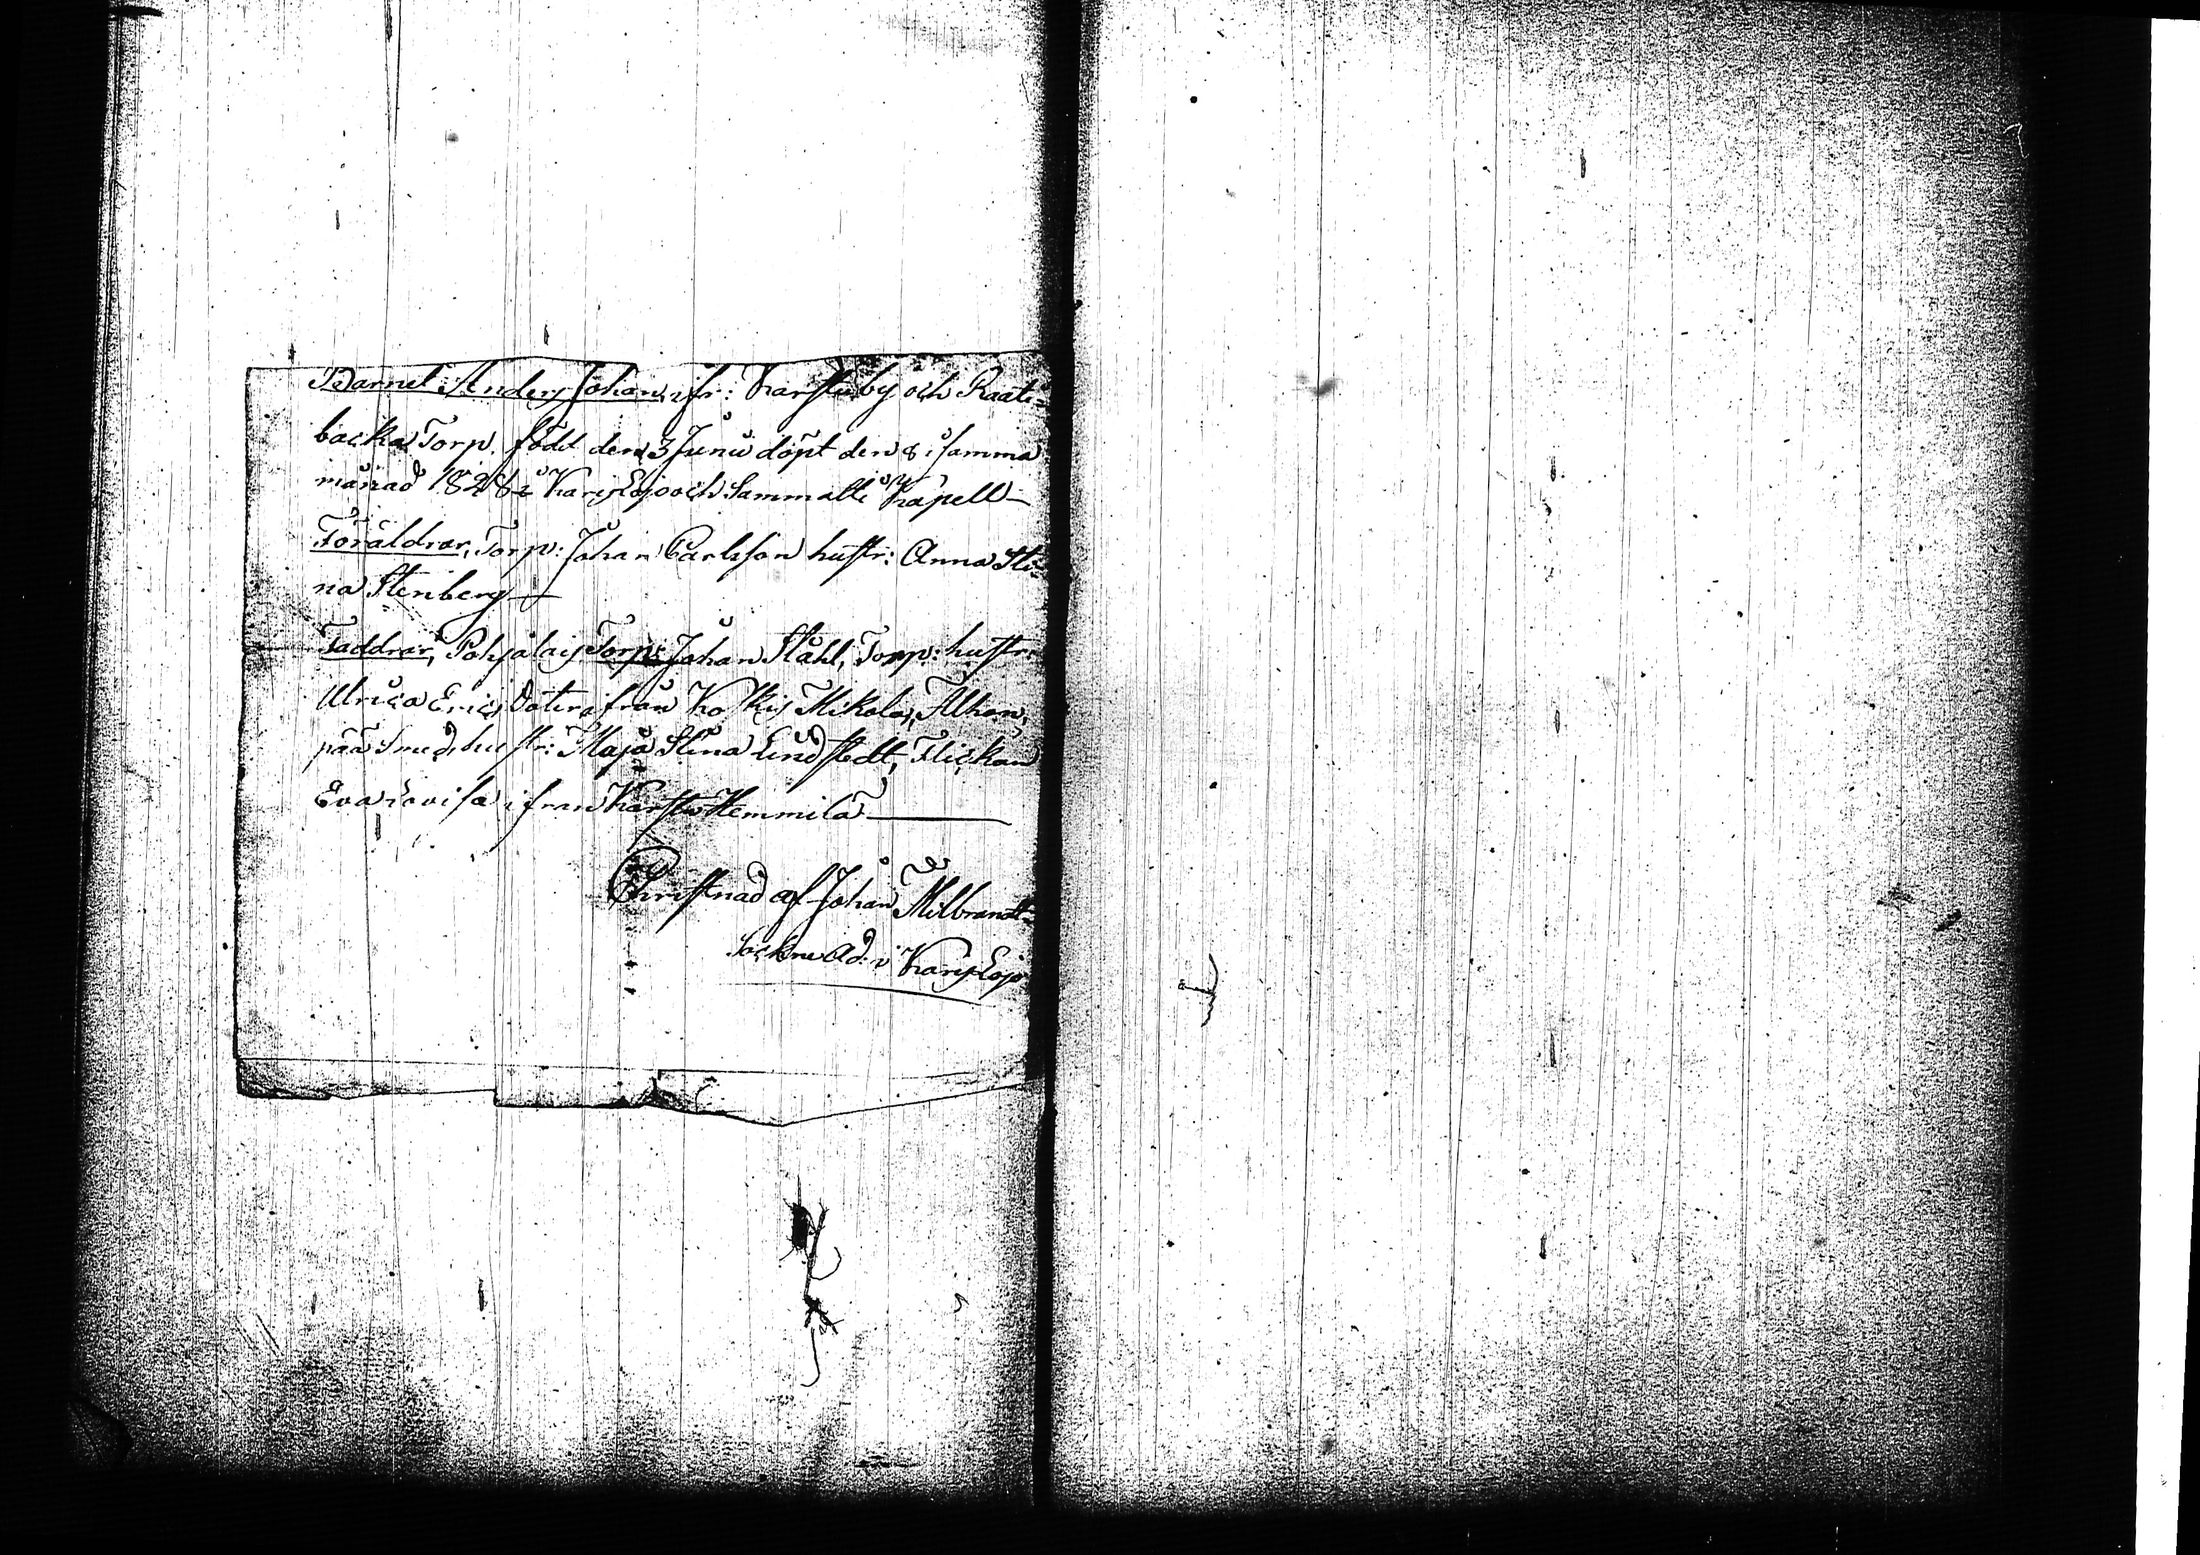 Barnet Anders Johan, ifr: Karstu by och Raati=
backa Torp. född den 3 Junii döpt den 8 i samma
månad 1828 i KarisLojo och Sammatti Kapell—
Föräldrar, Torp: Johan Carlsson hustr: Anna Sti=
na Stenberg—
Faddrar, Pohjalais Torp: Johan Ståhl, Torp: hustr:
Ulrica Erics Doter ifrån Koskis Mikola,
pää Smed hustr: Maja Stina Lindstedt, Flickan
Eva Lovisa ifrån Karstu Hemmilä
Christnad af Johan Milbrandt
Sockne Ad: i KarisLojo